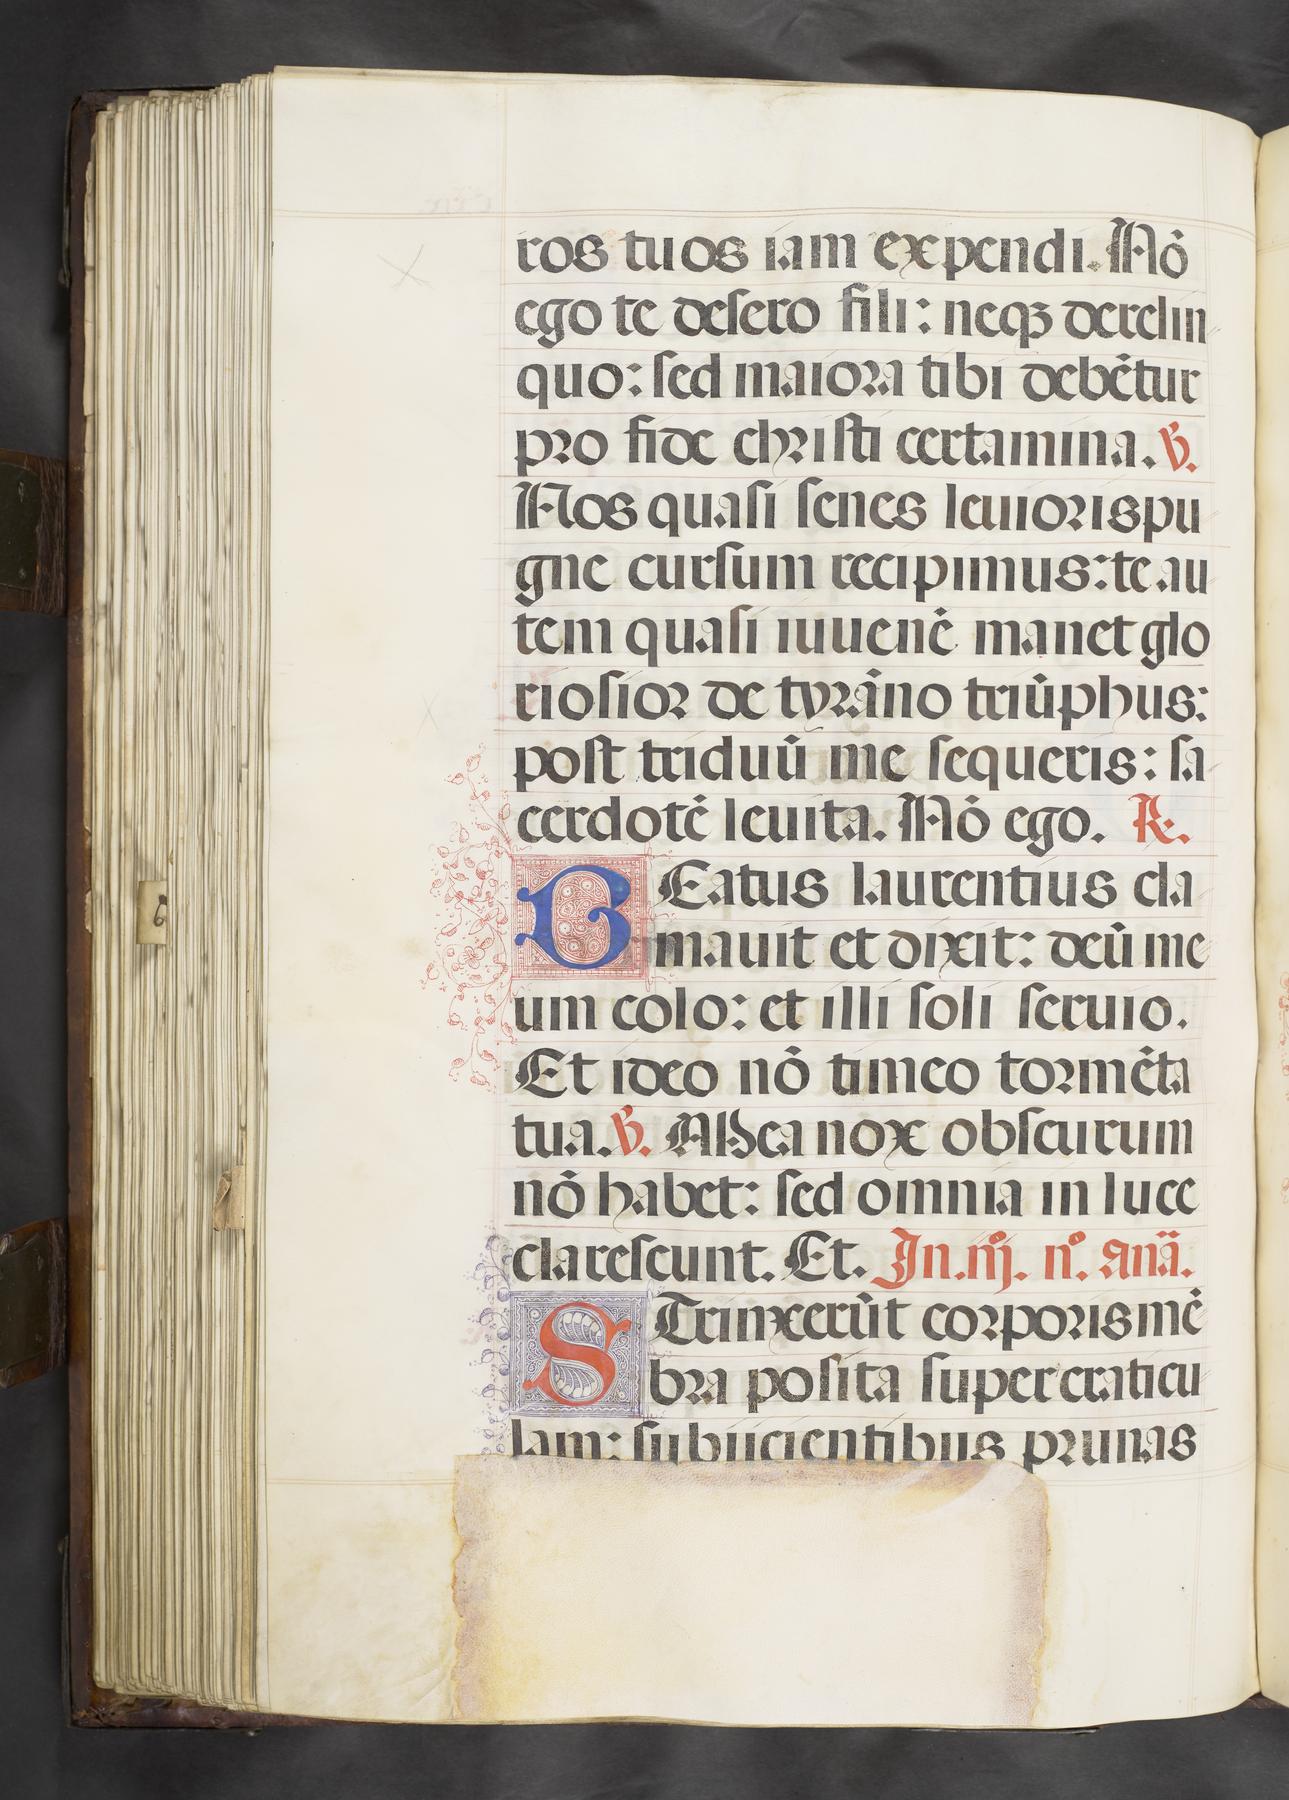 ros tuos iam expendi. Nō
ego te desero fili: neqꝫ derelin
quo: sed maiora tibi debētur
pro fide christi certamina. ℣.
Nos quasi senes leuioris pu
gne cursum recipimus: te au
tem quasi iuuenē manet glo
riosior de tyrāno triūphus:
post triduū me sequeris: sa
cerdotē leuita. Nō ego. ℟.
BEatus laurentius cla
mauit et dixit: deū me
um colo: et illi soli seruio.
Et ideo nō timeo tormēta
tua. ℣. Mea nox obscurum
nō habet: sed omnia in luce
clarescunt. Et. In .iij. nº. anã.
STrinxerūt corporis mē
bra posita super craticu
lam: subiicientibus prunas
6